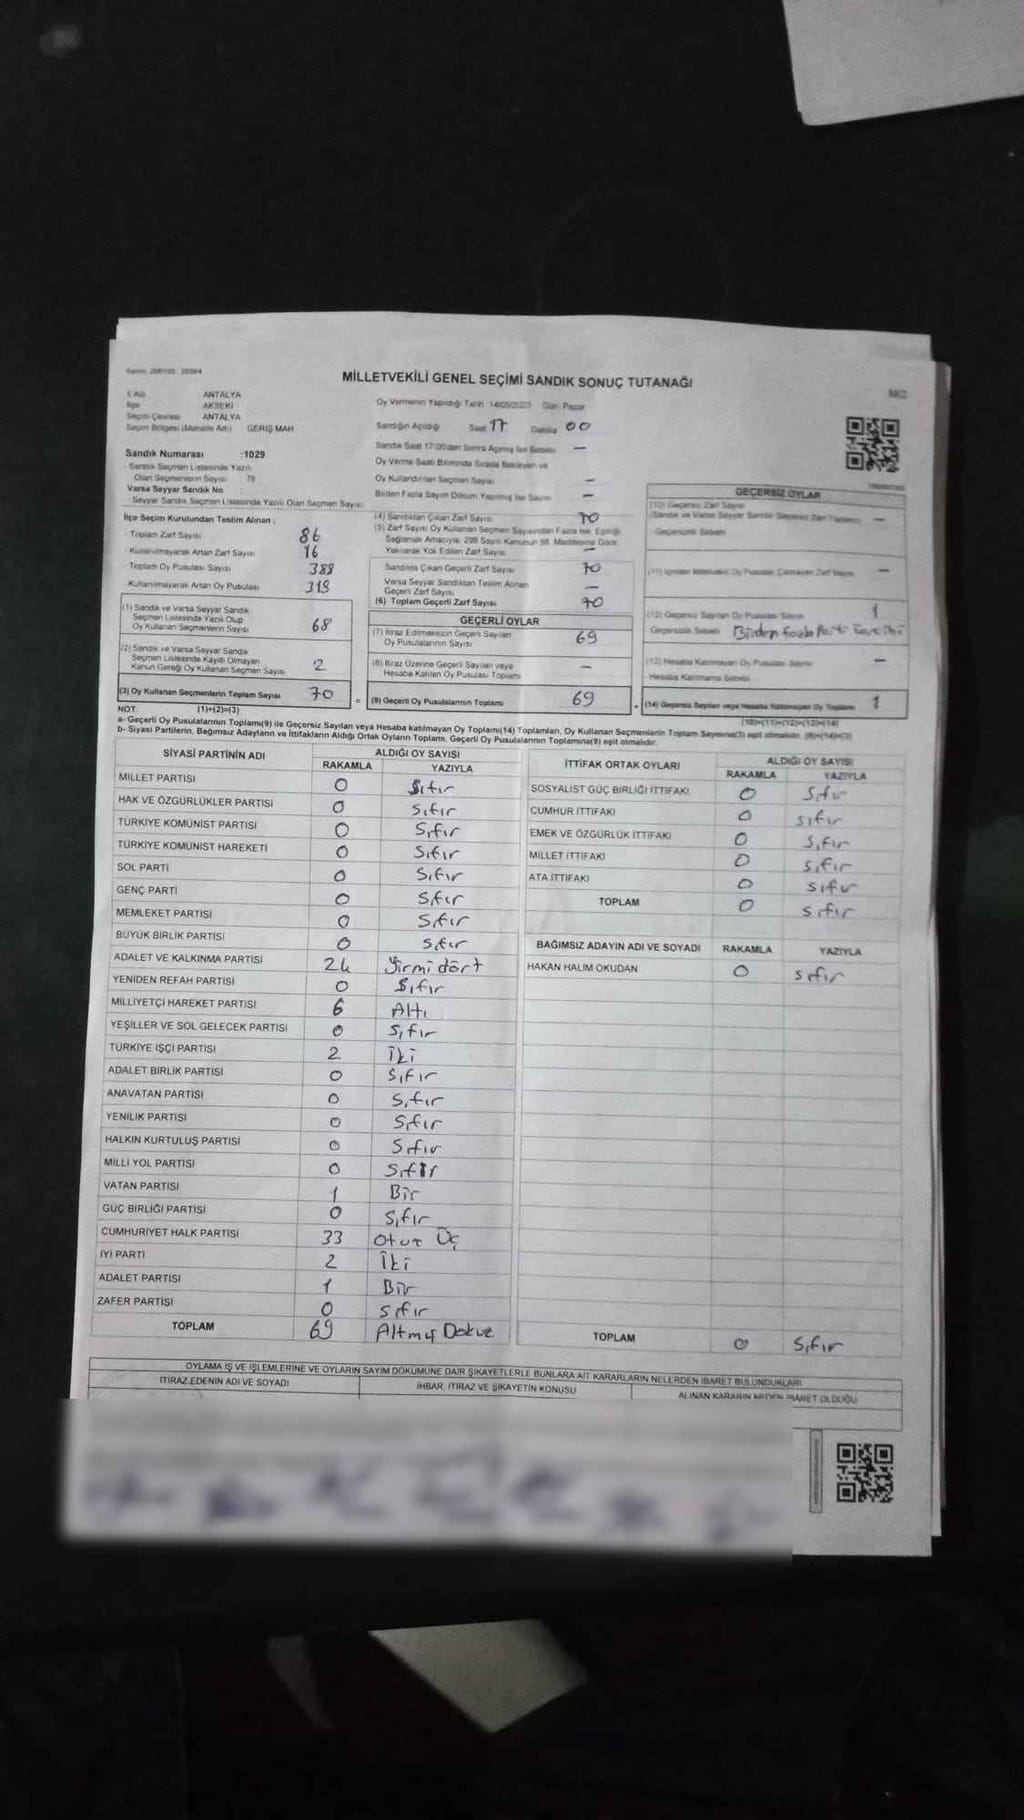 MİLLETVEKİLİ GENEL SEÇİMİ SANDIK SONUÇ TUTANAĞI
İl Adı ANTALYA
İlçe AKSEKİ
Seçim Çevresi ANTALYA
Seçim Bölgesi (Mahalle Adı) GERİŞ MAH
Sandık Numarası :1029
Sandık Seçmen Listesinde Yazılı
Olan Seçmenlerin Sayısı 78
Varsa Seyyar Sandık No
Seyyar Sandık Seçmen Listesinde Yazılı Olan Seçmen Sayısı
Oy Vermenin Yapıldığı Tarih 14/05/2023 Gün Pazar
Sandığın Açıldığı Saat 17 Dakika 00
Sandık Saat 17:00'den Sonra Açılmış İse Sebebi –
Oy Verme Saati Bitiminde Sırada Bekleyen ve
Oy Kullandırılan Seçmen Sayısı –
Birden Fazla Sayım Döküm Yapılmış İse Sayısı –
İlçe Seçim Kurulundan Teslim Alınan :
Toplam Zarf Sayısı 86
Kullanılmayarak Artan Zarf Sayısı 16
Toplam Oy Pusulası Sayısı 388
Kullanılmayarak Artan Oy Pusulası 318
(1) Sandık ve Varsa Seyyar Sandık
Seçmen Listesinde Yazılı Olup
Oy Kullanan Seçmenlerin Sayısı 68
(2) Sandık ve Varsa Seyyar Sandık
Seçmen Listesinde Kayıtlı Olmayan
Kanun Gereği Oy Kullanan Seçmen Sayısı 2
(3) Oy Kullanan Seçmenlerin Toplam Sayısı 70
(1)+(2)=(3)
(4) Sandıktan Çıkan Zarf Sayısı 70
(5) Zarf Sayısı Oy Kullanan Seçmen Sayısından Fazla İse, Eşitliği
Sağlamak Amacıyla, 298 Sayılı Kanunun 98. Maddesine Göre
Yakılarak Yok Edilen Zarf Sayısı –
Sandıkta Çıkan Geçerli Zarf Sayısı 70
Varsa Seyyar Sandıktan Teslim Alınan
Geçerli Zarf Sayısı –
(6) Toplam Geçerli Zarf Sayısı 70
GEÇERLİ OYLAR
(7) İtiraz Edilmeksizin Geçerli Sayılan
Oy Pusulalarının Sayısı 69
(8) İtiraz Üzerine Geçerli Sayılan veya
Hesaba Katılan Oy Pusulası Toplamı –
(9) Geçerli Oy Pusulalarının Toplamı 69
GEÇERSİZ OYLAR
(10) Geçersiz Zarf Sayısı
(Sandık ve Varsa Seyyar Sandık Geçersiz Zarf Toplamı) –
Geçersizlik Sebebi
(12) Geçersiz Sayılan Oy Pusulası Sayısı 1
Geçersizlik Sebebi Birden fazla Parti
(13) Hesaba Katılmayan Oy Pusulası Sayısı –
Hesaba Katılmama Sebebi
(14) Geçersiz Sayılan veya Hesaba Katılmayan Oy Toplamı 1
(10)+(11)+(12)+(13)=(14)
NOT:
a- Geçerli Oy Pusulalarının Toplamı(9) ile Geçersiz Sayılan veya Hesaba katılmayan Oy Toplamı(14) Toplamları, Oy Kullanan Seçmenlerin Toplam Sayısına(3) eşit olmalıdır. (9)+(14)=(3)
b- Siyasi Partilerin, Bağımsız Adayların ve İttifakların Aldığı Ortak Oyların Toplamı, Geçerli Oy Pusulalarının Toplamına(9) eşit olmalıdır.
SİYASİ PARTİNİN ADI ALDIĞI OY SAYISI
RAKAMLA YAZIYLA
MİLLET PARTİSİ 0 Sıfır
HAK VE ÖZGÜRLÜKLER PARTİSİ 0 Sıfır
TÜRKİYE KOMÜNİST PARTİSİ 0 Sıfır
TÜRKİYE KOMÜNİST HAREKETİ 0 Sıfır
SOL PARTİ 0 Sıfır
GENÇ PARTİ 0 Sıfır
MEMLEKET PARTİSİ 0 Sıfır
BÜYÜK BİRLİK PARTİSİ 0 Sıfır
ADALET VE KALKINMA PARTİSİ 24 Yirmi dört
YENİDEN REFAH PARTİSİ 0 Sıfır
MİLLİYETÇİ HAREKET PARTİSİ 6 Altı
YEŞİLLER VE SOL GELECEK PARTİSİ 0 Sıfır
TÜRKİYE İŞÇİ PARTİSİ 2 İki
ADALET BİRLİK PARTİSİ 0 Sıfır
ANAVATAN PARTİSİ 0 Sıfır
YENİLİK PARTİSİ 0 Sıfır
HALKIN KURTULUŞ PARTİSİ 0 Sıfır
MİLLİ YOL PARTİSİ 0 Sıfır
VATAN PARTİSİ 1 Bir
GÜÇ BİRLİĞİ PARTİSİ 0 Sıfır
CUMHURİYET HALK PARTİSİ 33 Otuz Üç
İYİ PARTİ 2 İki
ADALET PARTİSİ 1 Bir
ZAFER PARTİSİ 0 Sıfır
TOPLAM 69 Altmış Dokuz
İTTİFAK ORTAK OYLARI ALDIĞI OY SAYISI
RAKAMLA YAZIYLA
SOSYALİST GÜÇ BİRLİĞİ İTTİFAKI 0 Sıfır
CUMHUR İTTİFAKI 0 sıfır
EMEK VE ÖZGÜRLÜK İTTİFAKI 0 Sıfır
MİLLET İTTİFAKI 0 Sıfır
ATA İTTİFAKI 0 sıfır
TOPLAM 0 Sıfır
BAĞIMSIZ ADAYIN ADI VE SOYADI RAKAMLA YAZIYLA
HAKAN HALİM OKUDAN 0 sıfır
TOPLAM 0 Sıfır
OYLAMA İŞ VE İŞLEMLERİNE VE OYLARIN SAYIM DÖKÜMÜNE DAİR ŞİKAYETLERLE BUNLARA AİT KARARLARIN NELERDEN İBARET BULUNDUKLARI
İTİRAZ EDENİN ADI VE SOYADI İHBAR, İTİRAZ VE ŞİKAYETİN KONUSU ALINAN KARARIN NEDEN İBARET OLDUĞU